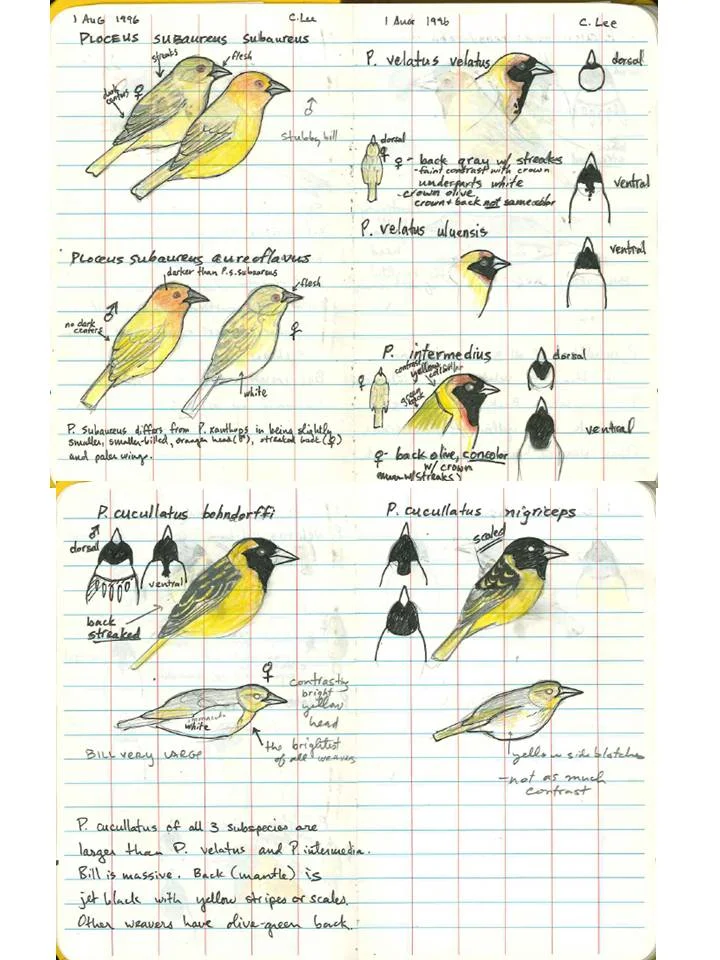 1 AUG 1996
C. Lee
PLOCEUS SUBAUREUS SUBAUREUS
streaks
flesh
dark
centers
♀
♂
stubby bill
PLOCEUS SUBAUREUS AUREOFLAVUS
darker than P.s. subaureus
flesh
♂
no dark
centers
♀
white
P. subaureus differs from P. xanthops in being slightly
smaller, smaller-billed, oranger head (♂), streaked back (♀)
and paler wings.
1 AUG 1996
C. Lee
P. velatus velatus
dorsal
dorsal
♀
♀ - back gray w/ streaks
- faint contrast with crown
underparts white
- crown olive
crown + back not same color
ventral
P. velatus uluensis
ventral
P. intermedius
dorsal
contrast
yellow
♀
green
back
ventral
♀ - back olive, concolor
w/ crown
w/ streaks)
P. cucullatus bohndorffi
♂
dorsal
ventral
back
streaked
♀
contrasting
bright
yellow
head
immac.
white
BILL VERY LARGE
the brightest
of all weavers
P. cucullatus of all 3 subspecies are
larger than P. velatus and P. intermedia.
Bill is massive. Back (mantle) is
jet black with yellow stripes or scales.
Other weavers have olive-green back.
P. cucullatus nigriceps
scaled
yellow side blotches
- not as much
contrast